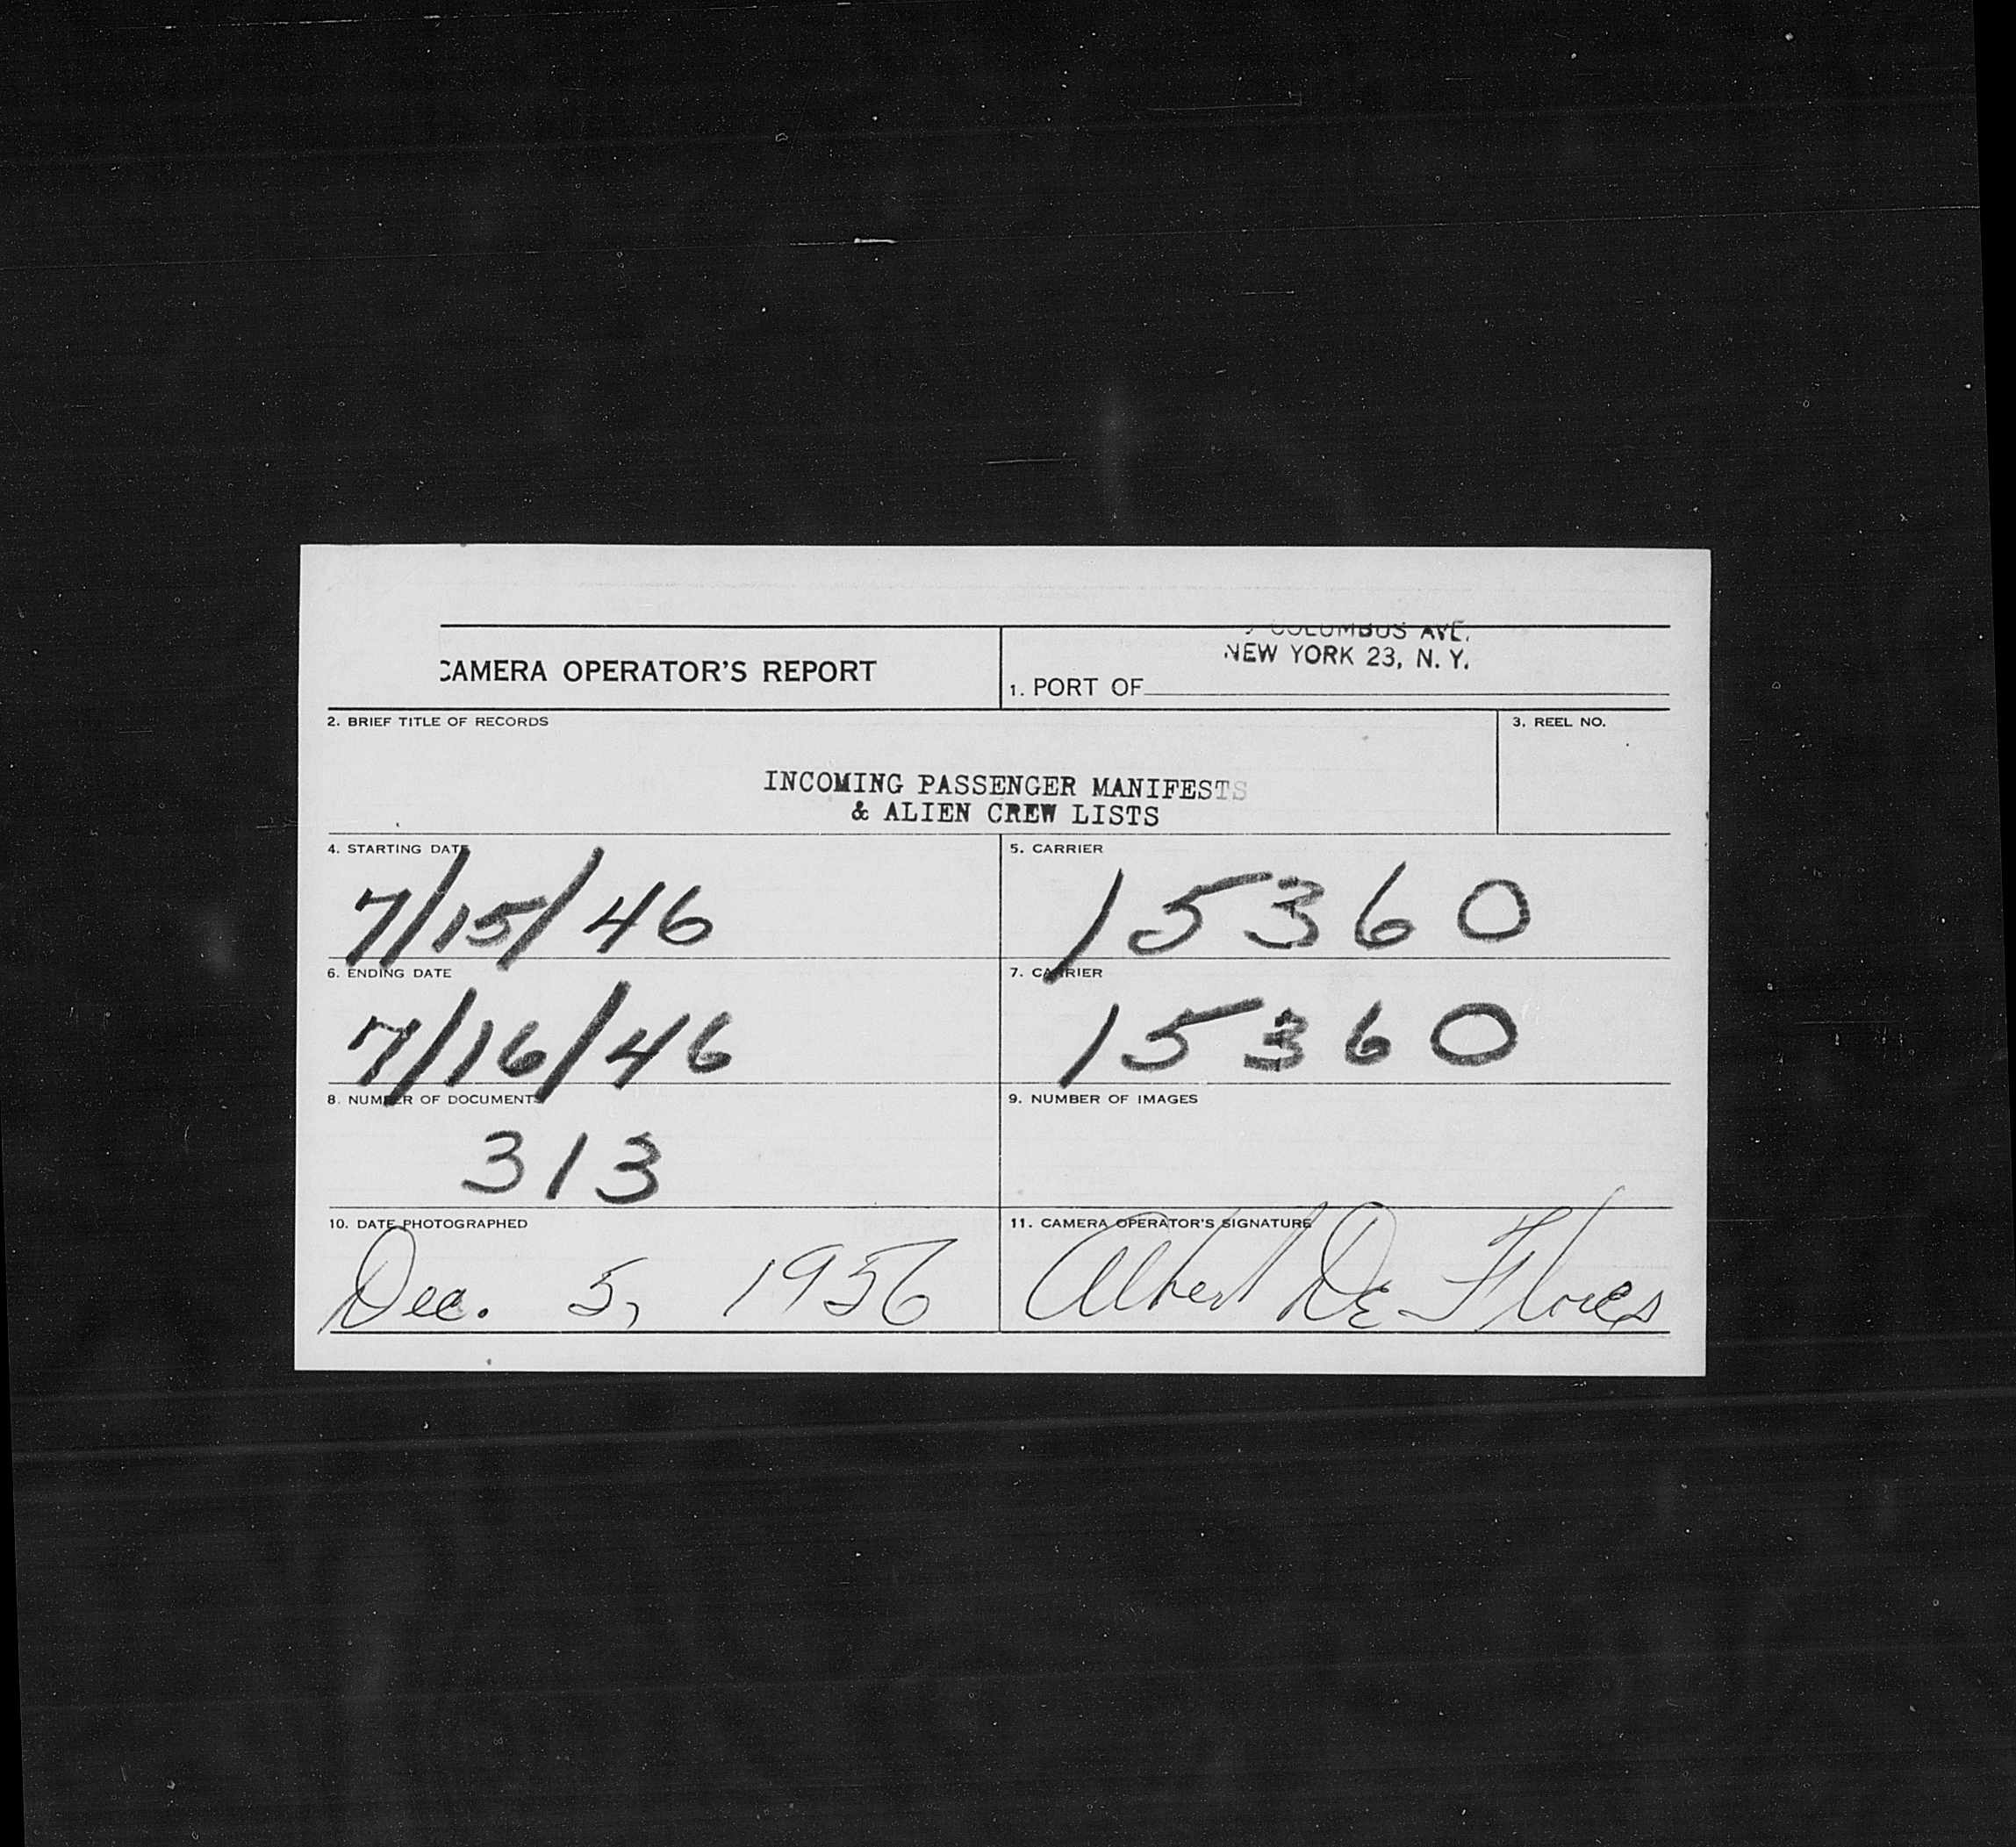 COLUMBUS AVE.
NEW YORK 23, N. Y.
CAMERA OPERATOR'S REPORT
1. PORT OF
2. BRIEF TITLE OF RECORDS
3. REEL NO.
INCOMING PASSENGER MANIFESTS
& ALIEN CREW LISTS
4. STARTING DATE
7/15/46
5. CARRIER
15360
6. ENDING DATE
7/16/46
7. CARRIER
15360
8. NUMBER OF DOCUMENTS
313
9. NUMBER OF IMAGES
10. DATE PHOTOGRAPHED
Dec. 5, 1956
11. CAMERA OPERATOR'S SIGNATURE
Albert De Flores